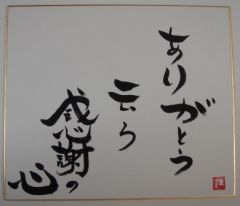 ありがとう
云う
感謝の
心